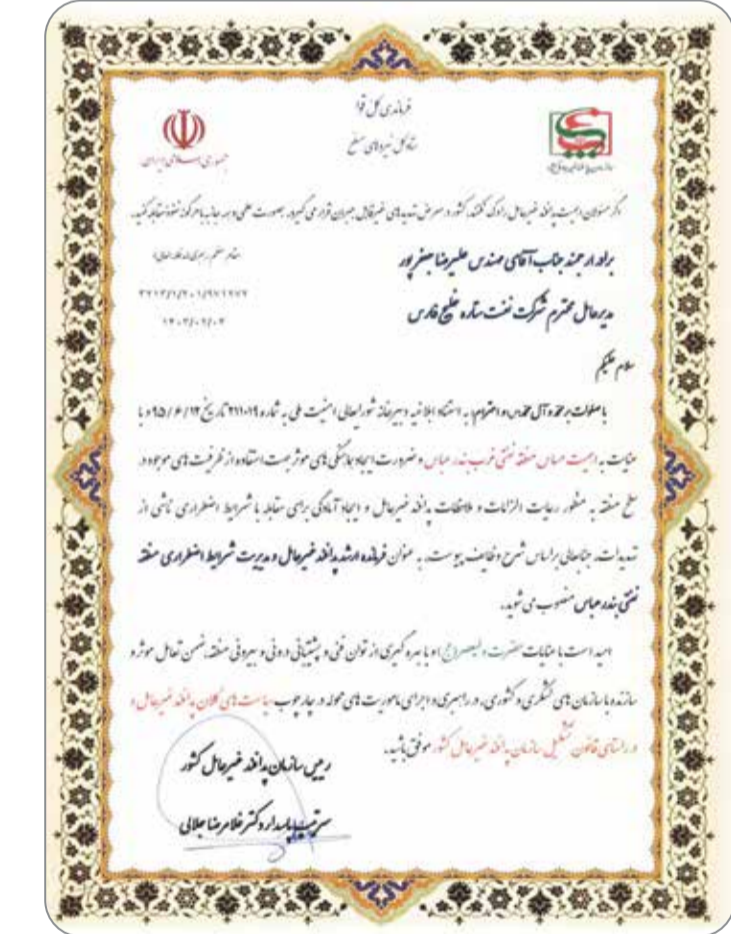 فرماندهی کل قوا
ستاد کل نیروهای مسلح
جمهوری اسلامی ایران
سازمان پدافند غیرعامل کشور
اگر مسئولان اهمیت پدافند غیرعامل را درک نکنند، کشور در معرض تهدیدهای غیرقابل جبران قرار می گیرد. بصورت علمی و همه جانبه با هرگونه نفوذ مقابله کنید.
مقام معظم رهبری (مد ظله العالی)
برادر ارجمند جناب آقای مهندس علیرضا جعفرپور
مدیرعامل محترم شرکت نفت ستاره خلیج فارس
۱۴۰۳/۰۲/۰۳
سلام علیکم
با صلوات بر محمد و آل محمد(ص) و احترام؛ به استناد ابلاغیه دبیرخانه شورایعالی امنیت ملی به شماره ۲۱۱۰۱۹ تاریخ ۹۵/۶/۱۲ و با
عنایت به اهمیت حساس منطقه نفتی غرب بندرعباس و ضرورت ایجاد هماهنگی های موثر جهت استفاده از ظرفیت های موجود در
سطح منطقه به منظور رعایت الزامات و ملاحظات پدافند غیرعامل و ایجاد آمادگی برای مقابله با شرایط اضطراری ناشی از
تهدیدات، جنابعالی براساس شرح وظایف پیوست، به عنوان فرمانده ارشد پدافند غیرعامل و مدیریت شرایط اضطراری منطقه
نفتی بندرعباس منصوب می شوید.
امید است با عنایات حضرت ولیعصر(عج) و با بهره گیری از توان فنی و پشتیبانی درونی و بیرونی منطقه، ضمن تعامل موثر و
سازنده با سازمان های لشگری و کشوری، در راهبری و اجرای ماموریت های محوله در چارچوب سیاست های کلان پدافند غیرعامل و
در راستای قانون تشکیل سازمان پدافند غیرعامل کشور موفق باشید.
رییس سازمان پدافند غیرعامل کشور
سرتیپ پاسدار دکتر غلامرضا جلالی